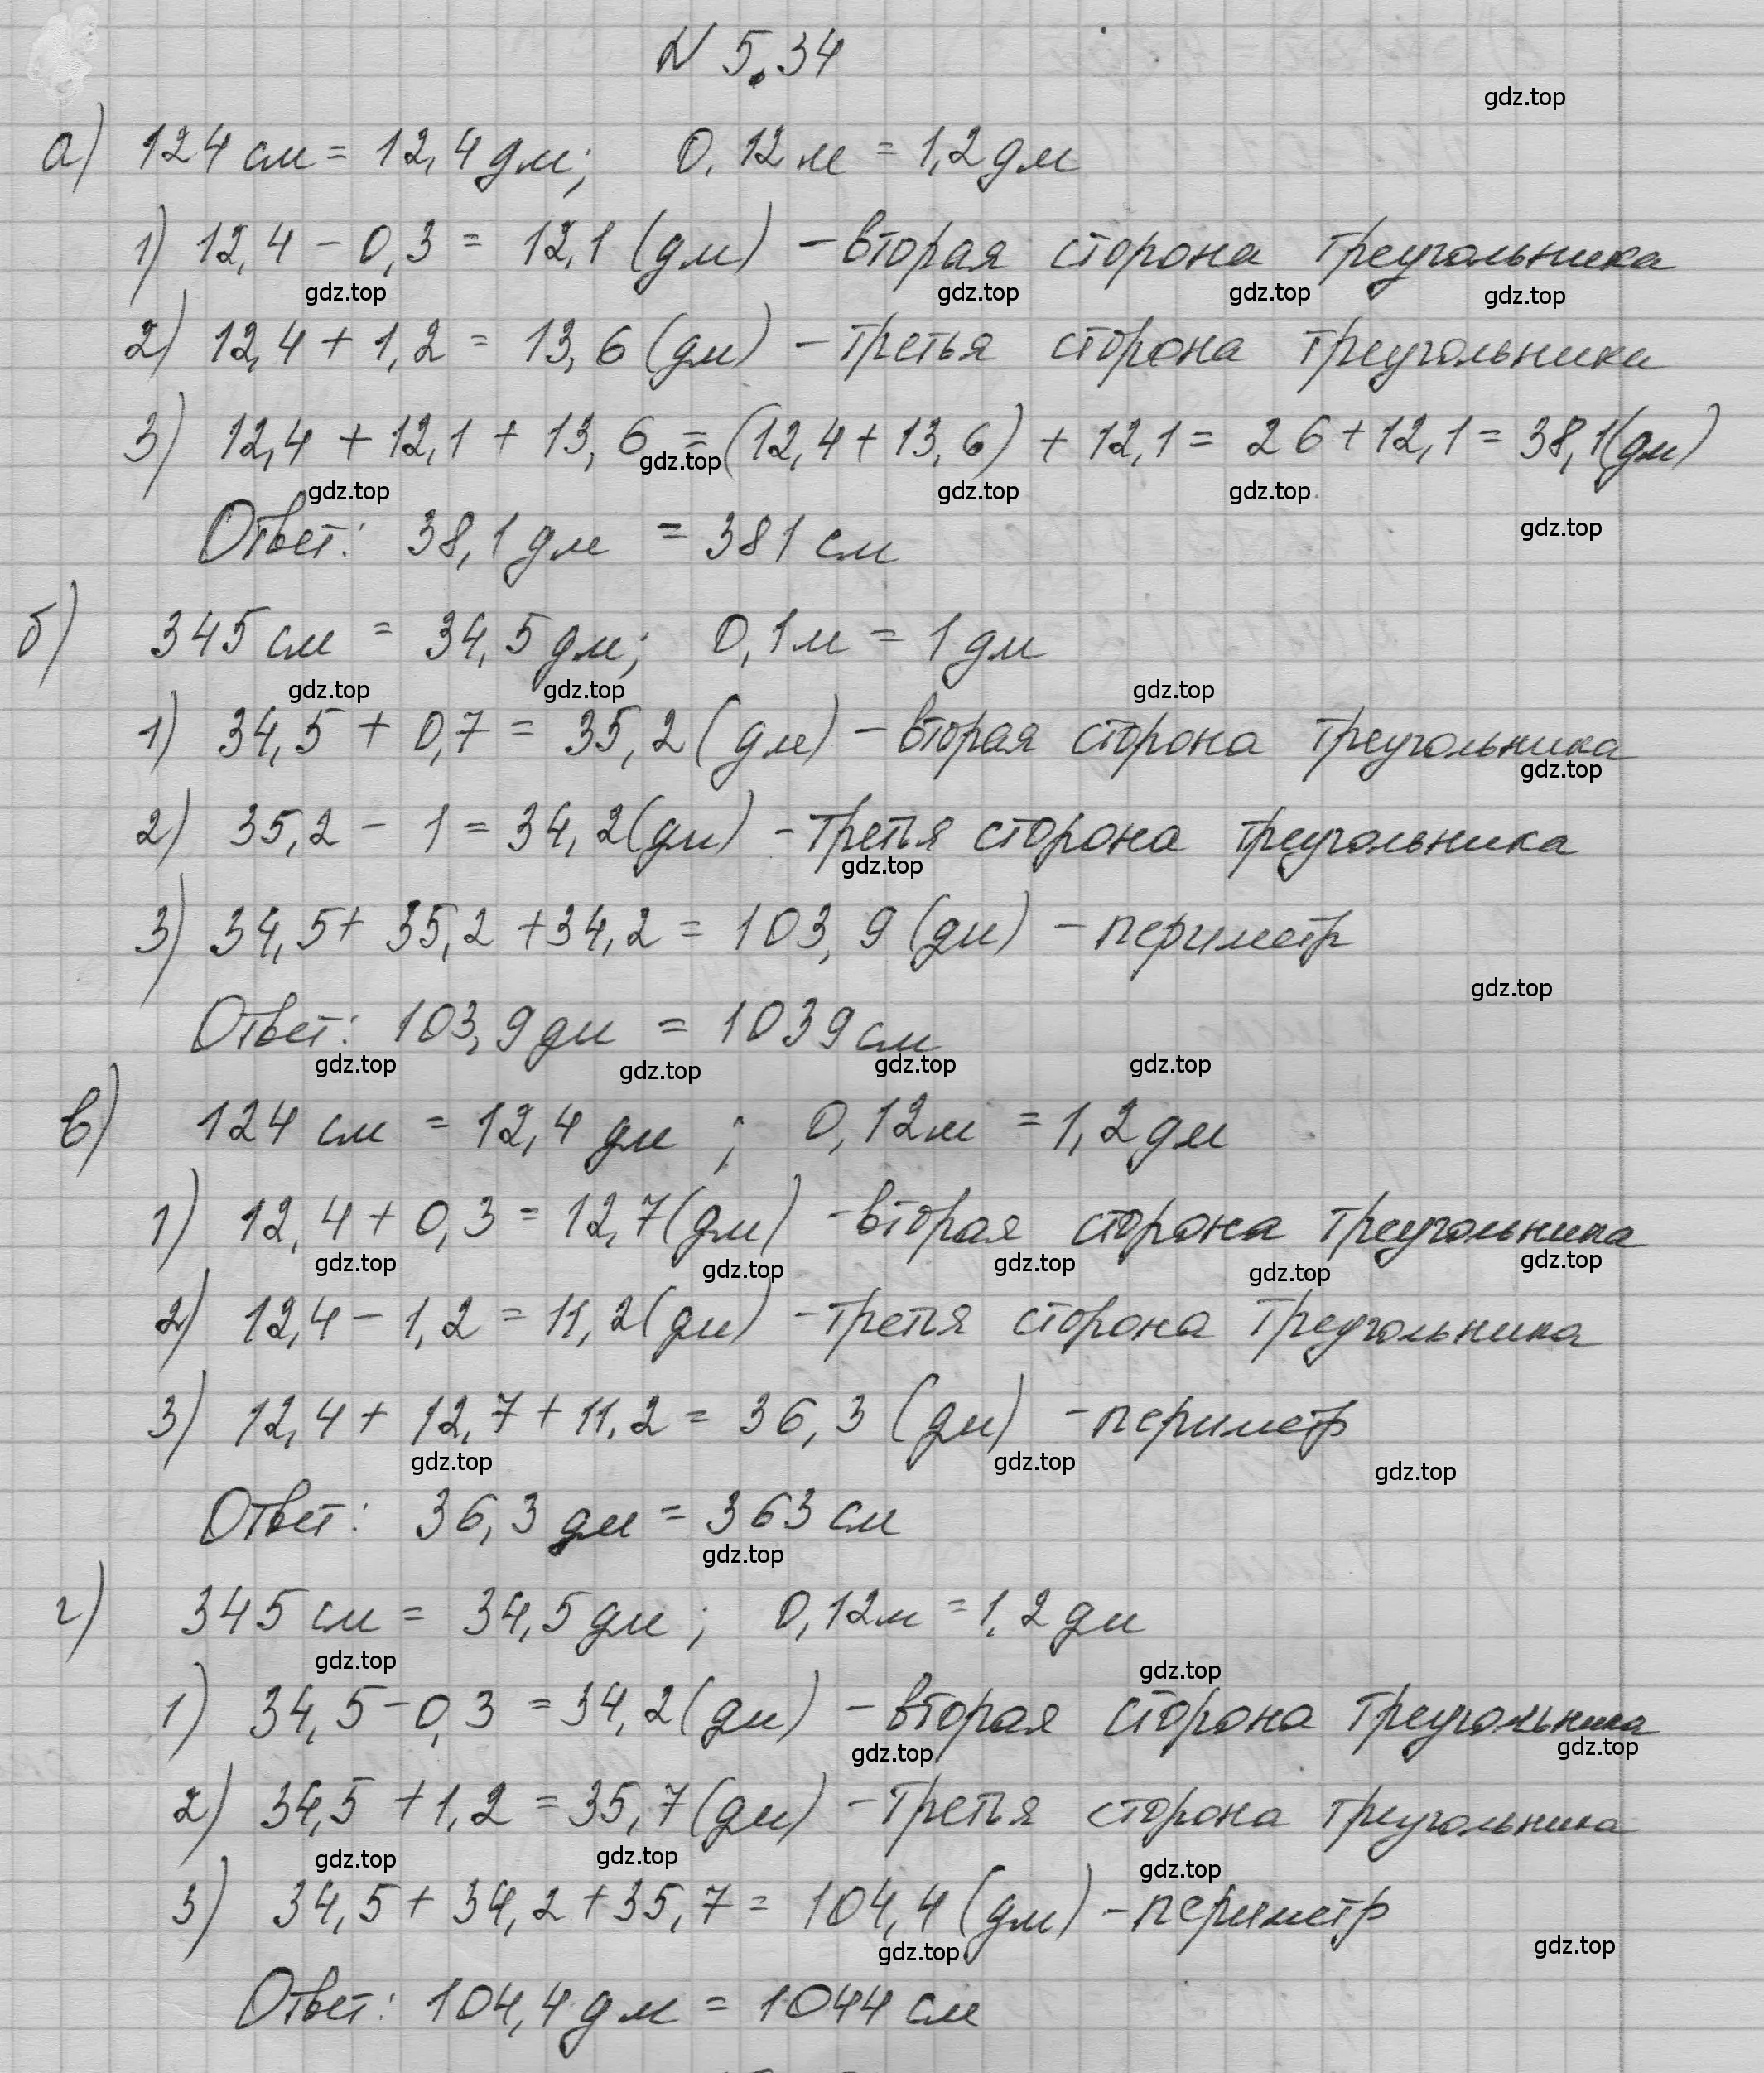 N 5.34
gdz.top
а) 124 см = 12,4 дм; 0,12 м = 1,2 дм
1) 12,4 - 0,3 = 12,1 (дм) - вторая сторона треугольника
gdz.top gdz.top gdz.top gdz.top
2) 12,4 + 1,2 = 13,6 (дм) - третья сторона треугольника
3) 12,4 + 12,1 + 13,6 = (12,4 + 13,6) + 12,1 = 26 + 12,1 = 38,1 (дм)
gdz.top
gdz.top gdz.top gdz.top
Ответ: 38,1 дм = 381 см
gdz.top
б) 345 см = 34,5 дм; 0,1 м = 1 дм
gdz.top gdz.top gdz.top
1) 34,5 + 0,7 = 35,2 (дм) - вторая сторона треугольника
gdz.top
2) 35,2 - 1 = 34,2 (дм) - третья сторона треугольника
gdz.top
3) 34,5 + 35,2 + 34,2 = 103,9 (дм) - периметр
gdz.top
Ответ: 103,9 дм = 1039 см
gdz.top gdz.top gdz.top gdz.top
в) 124 см = 12,4 дм; 0,12 м = 1,2 дм
1) 12,4 + 0,3 = 12,7 (дм) - вторая сторона треугольника
gdz.top gdz.top gdz.top gdz.top gdz.top
2) 12,4 - 1,2 = 11,2 (дм) - третья сторона треугольника
3) 12,4 + 12,7 + 11,2 = 36,3 (дм) - периметр
gdz.top gdz.top gdz.top
Ответ: 36,3 дм = 363 см
gdz.top
г) 345 см = 34,5 дм; 0,12 м = 1,2 дм
gdz.top gdz.top
1) 34,5 - 0,3 = 34,2 (дм) - вторая сторона треугольника
gdz.top gdz.top
2) 34,5 + 1,2 = 35,7 (дм) - третья сторона треугольника
gdz.top gdz.top gdz.top
3) 34,5 + 34,2 + 35,7 = 104,4 (дм) - периметр
gdz.top gdz.top
Ответ: 104,4 дм = 1044 см